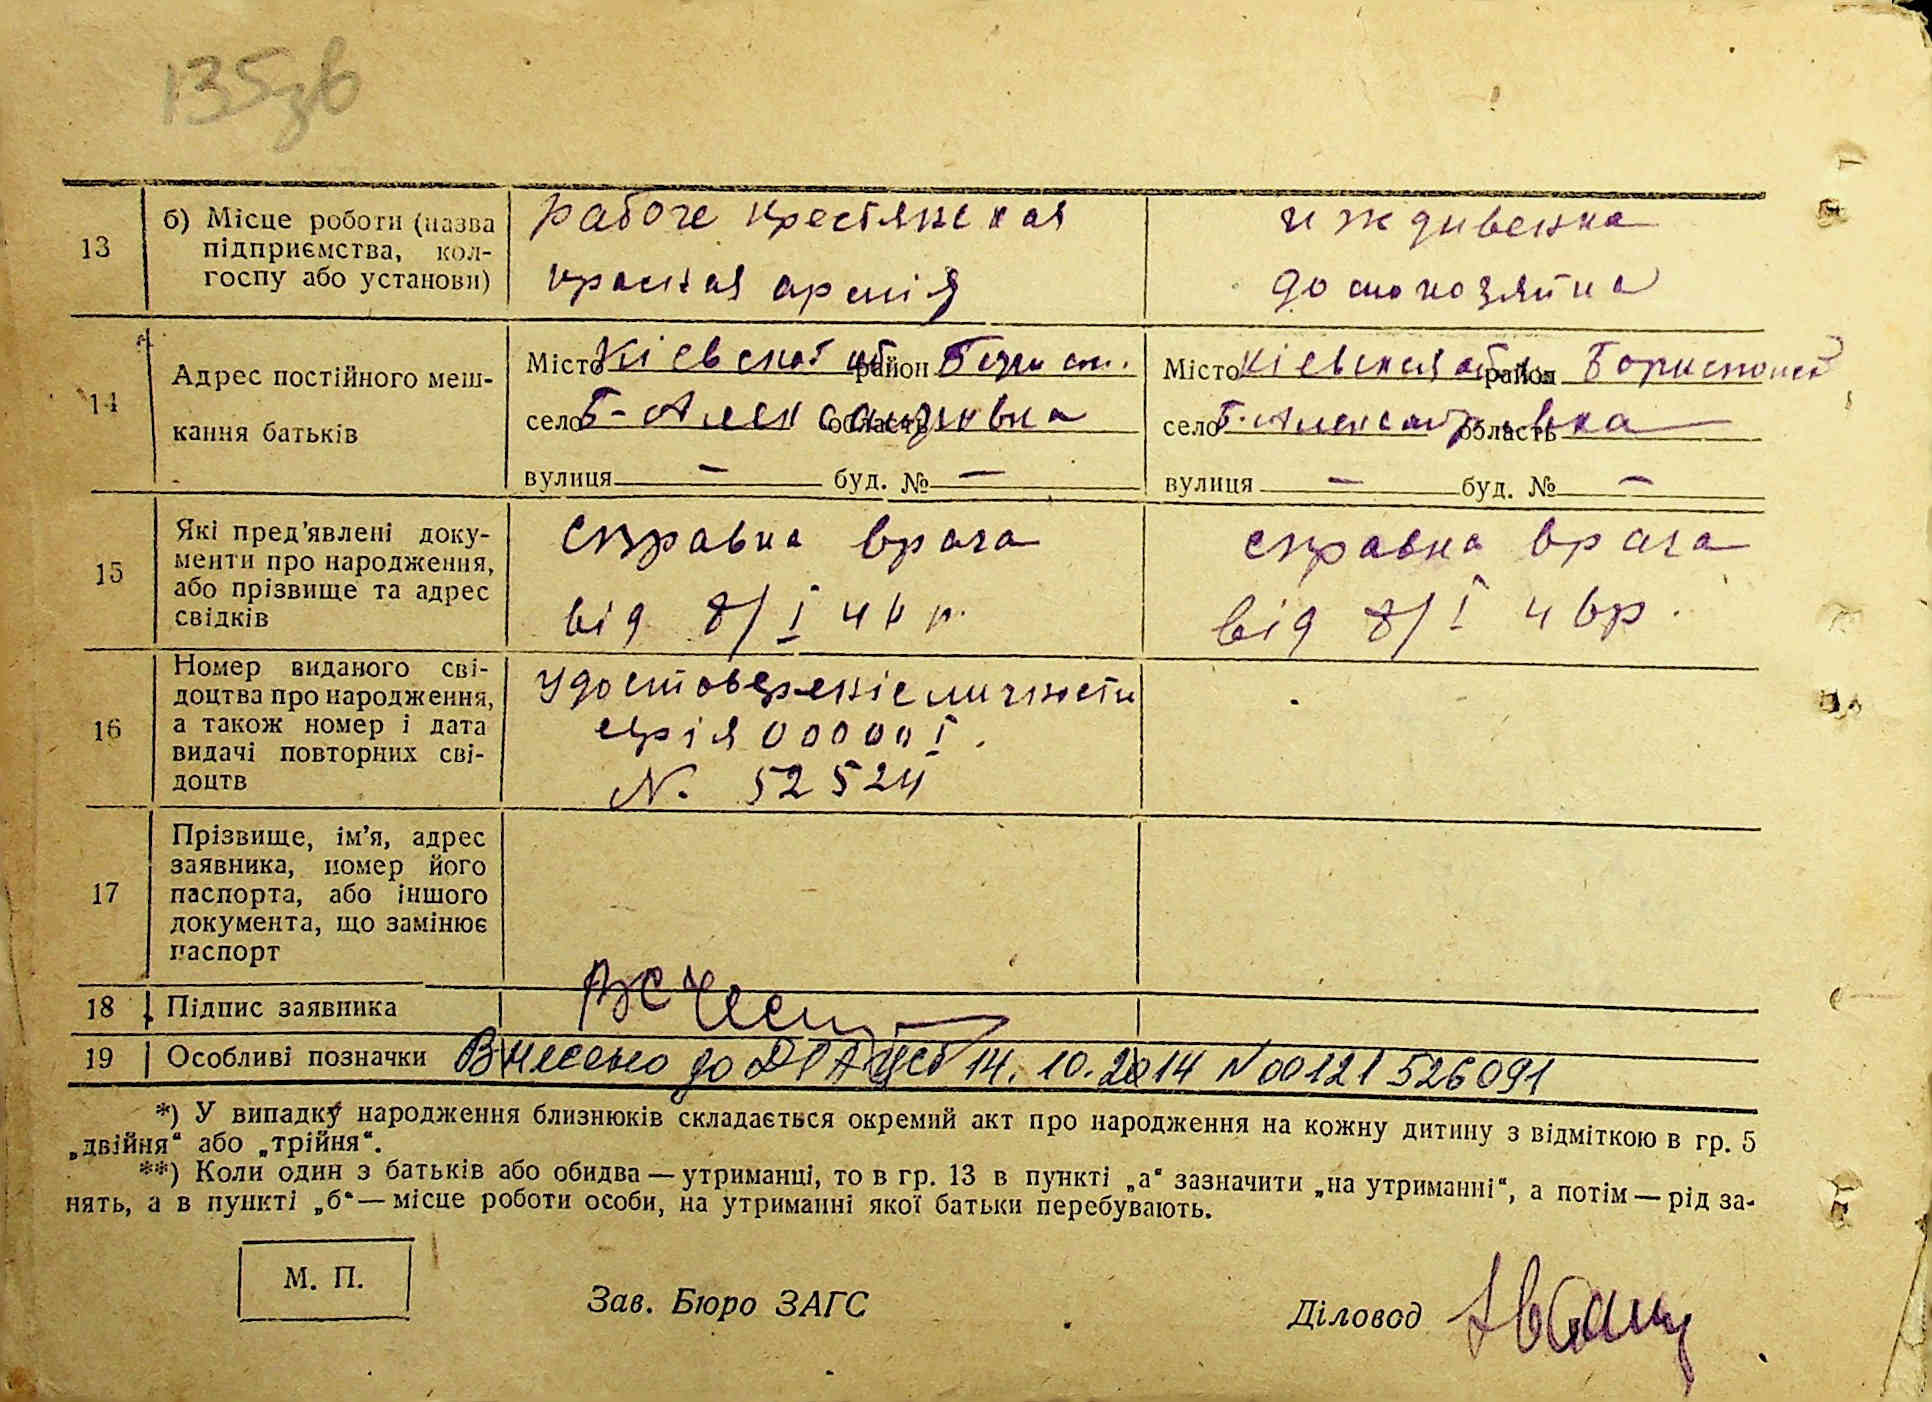 135зв
13
б) Місце роботи (назва
підприємства, кол-
госпу або установи)
рабоче крестянская
красная армія
иждивенка
домохозяйка
14
Адрес постійного меш-
кання батьків
Місто Кіевской об район Борисп.
село Б-Александровка область
вулиця — буд. № —
Місто Кіевская обл. район Бориспольск
село Б. Александровка область
вулиця — буд. № —
15
Які пред'явлені доку-
менти про народження,
або прізвище та адрес
свідків
справка врача
від 8/I 46 р.
справка врача
від 8/I 46р.
16
Номер виданого сві-
доцтва про народження,
а також номер і дата
видачі повторних сві-
доцтв
Удостоверенiе личности
серія 00000 I.
N. 52524
17
Прізвище, ім'я, адрес
заявника, номер його
паспорта, або іншого
документа, що замінює
паспорт
18
Підпис заявника
19
Особливі позначки
Внесено до ДРАЦСГ 14.10.2014 N00121526091
*) У випадку народження близнюків складається окремий акт про народження на кожну дитину з відміткою в гр. 5
„двійня“ або „трійня“.
**) Коли один з батьків або обидва — утриманці, то в гр. 13 в пункті „а“ зазначити „на утриманні“, а потім — рід за-
нять, а в пункті „б“ — місце роботи особи, на утриманні якої батьки перебувають.
М. П.
Зав. Бюро ЗАГС
Діловод